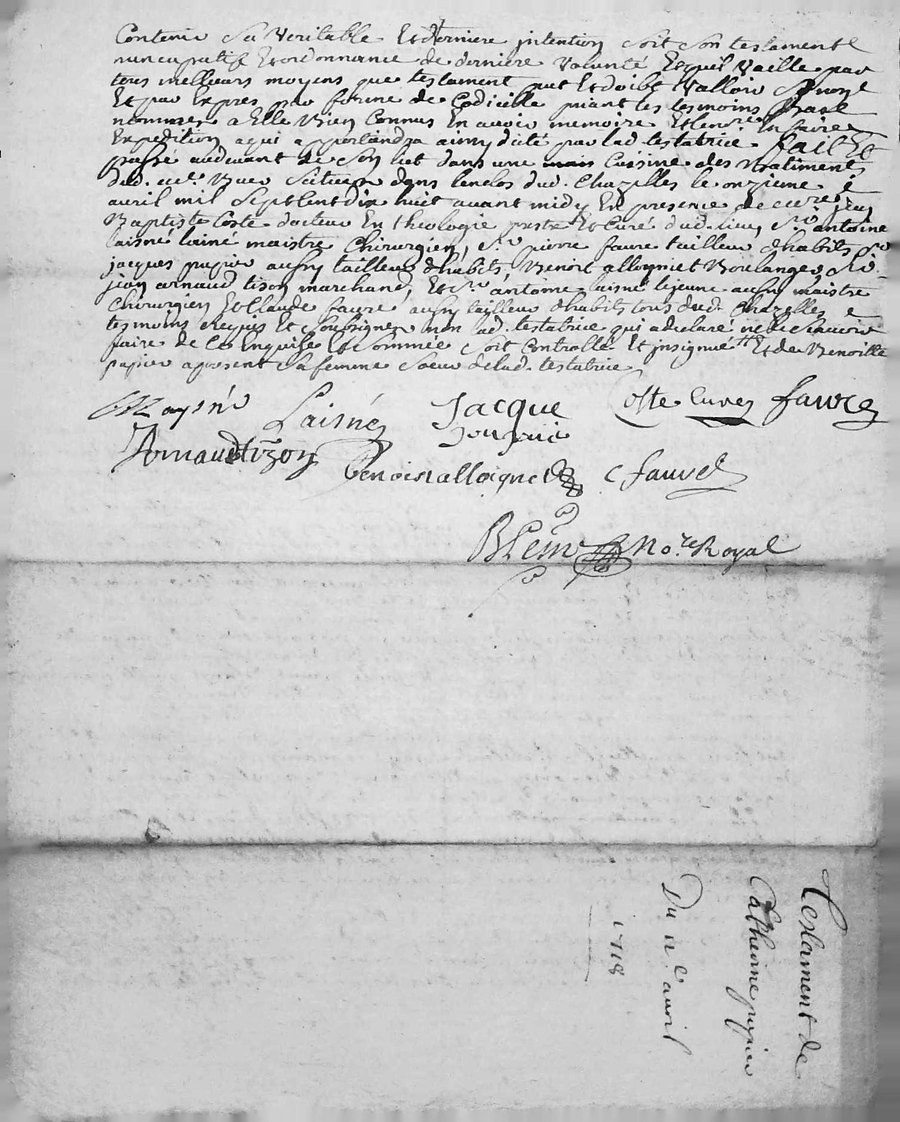 Contenir sa Veritable Et derniere intention soit son testament
nuncupatif Et ordonnance de derniere Volunté Et quil Vaille par
tous meilleurs moyens que testament put Et doibt Valloir
Et par Expres par forme de Codicille priant les tesmoins
nommes a Elle Bien Connus En avoir memoire Et
Expedition a qui appartiendra ainsy dité par lad. testatrice fait Et
passé audevant de son lict dans une cuisine des Batiments
dud. Situes dans lenclos dud. Chazelles le onzieme
avril mil Sept Cent dix huit avant midy En presence de
Baptiste Coste docteur En theologie prestre Et Curé dud. lieu, Sr. antoine
laisné lainé maistre Chirurgien, Sr. pierre faure tailleur dhabits, Sr
jacques papier aussy tailleur dhabits, Benoit alloigniet Boulanger,
jean arnaud tison marchand, Et Sr. antoine laisné lejeune aussy maistre
Chirurgien Et Claude faure aussy tailleur dhabits tous dud. Chazelles
tesmoins requis Et soussignes non lad. testatrice qui a declaré ne le scavoir
faire de Ce Enquise Et sommée soit Controllé Et insignué Et de Benoitte
papier a present sa femme soeur de lad. testatrice
Laisné Jacque Coste Curé faure
Arnaudtizon Benoist alloignet C faure
No.re Royal
Testament de
Catherine papier
Du 11e. avril
1718